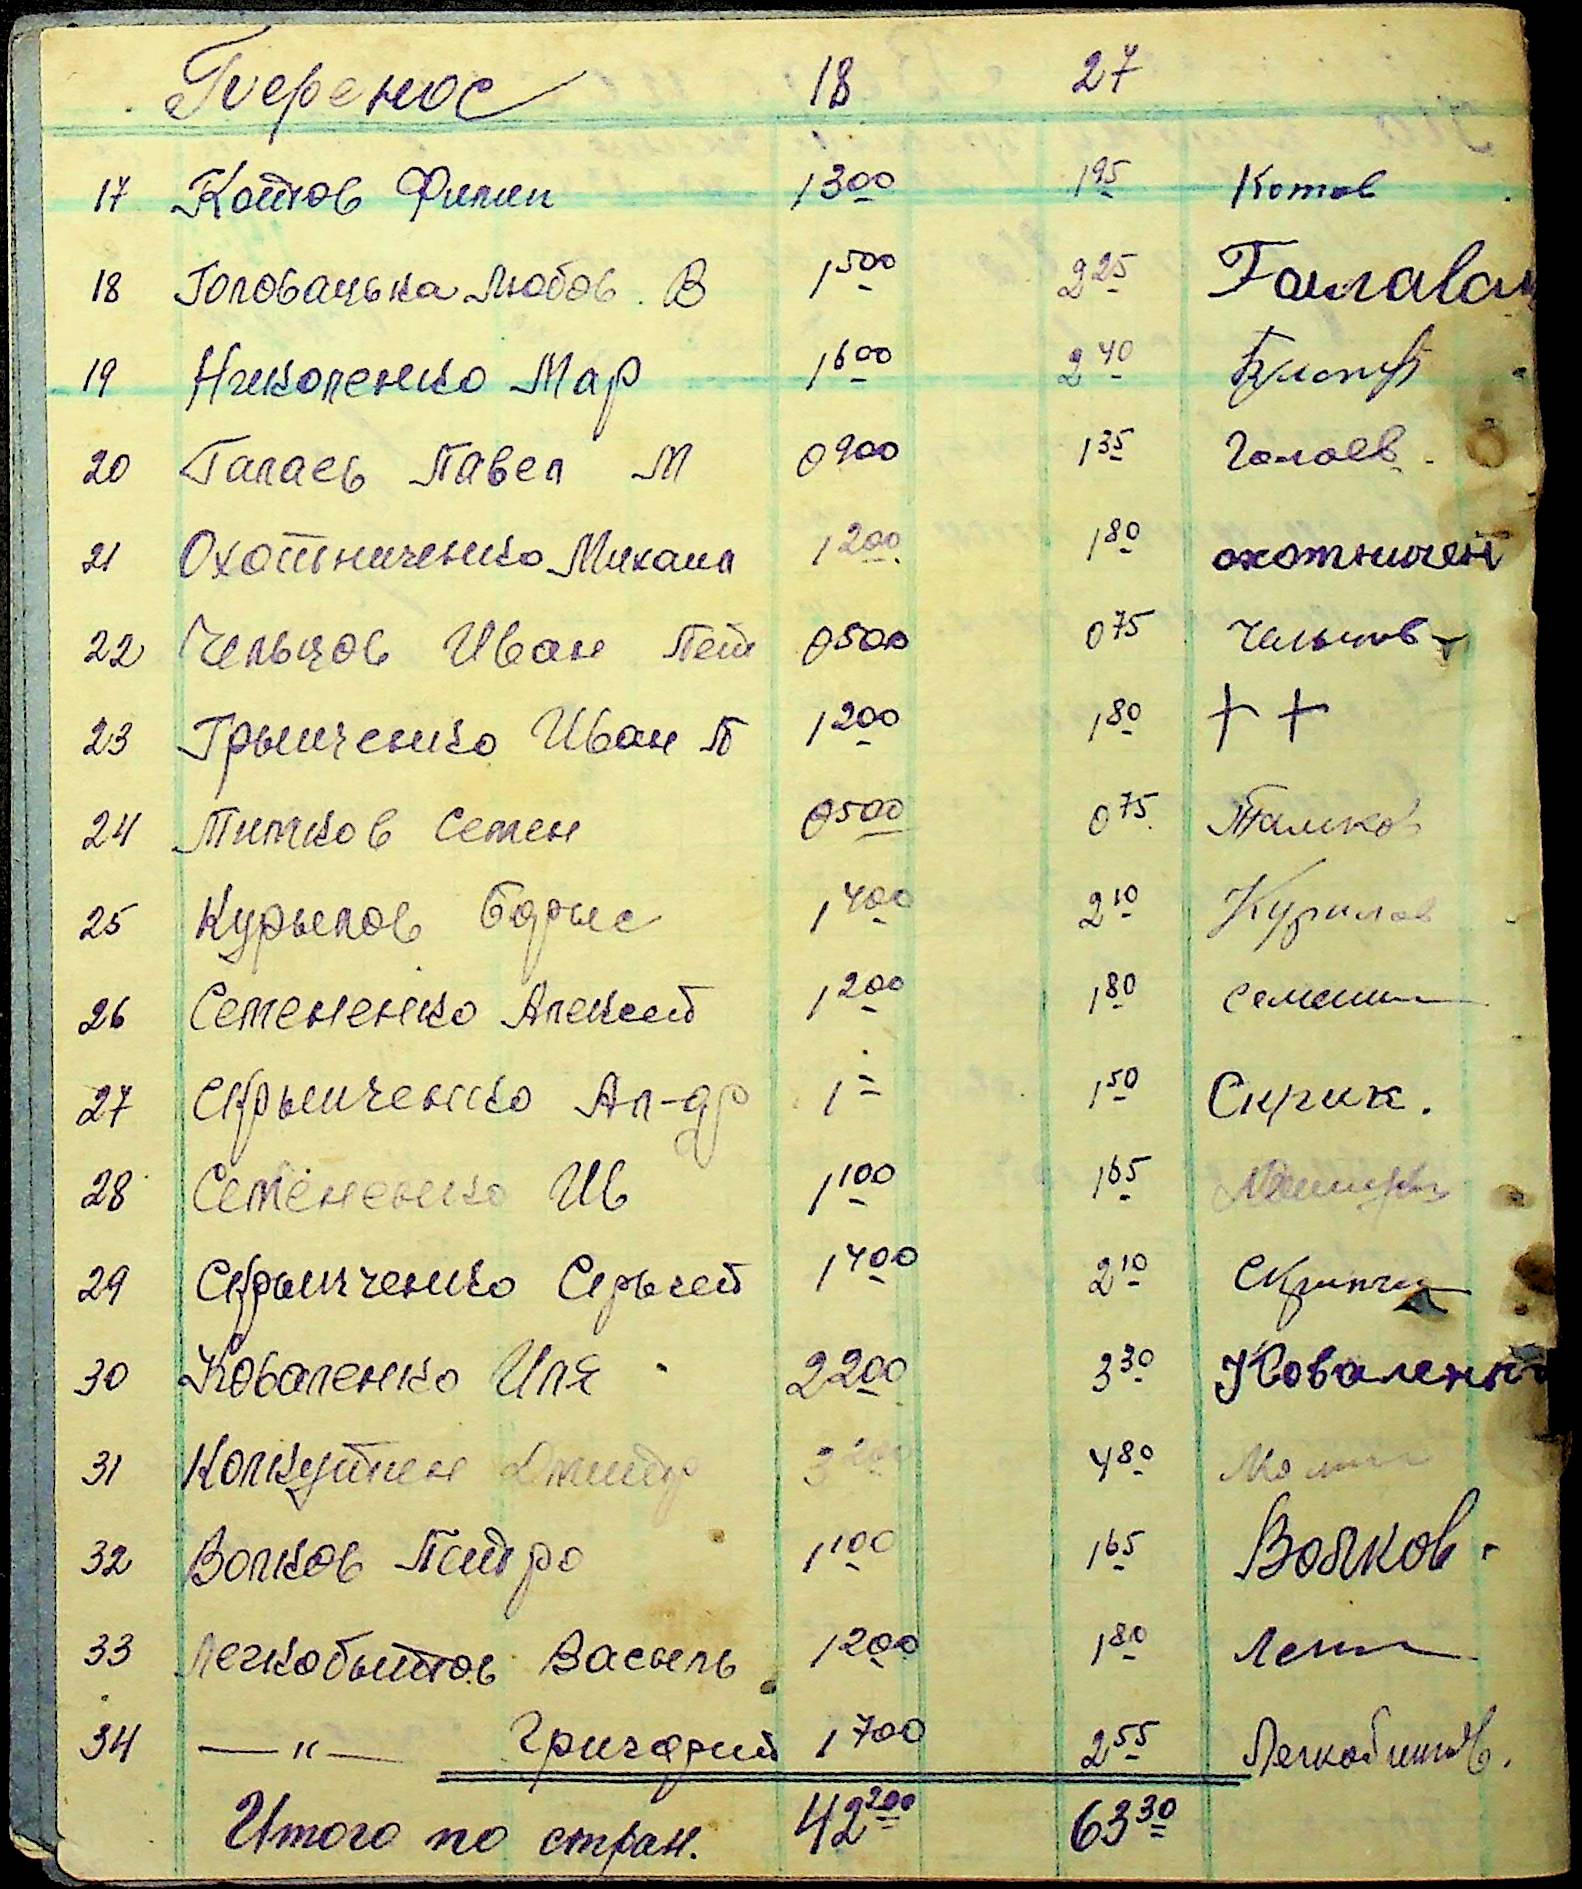 Перенос 18 27
17 Котов Филип 1300 195 Котов
18 Головацька Любов В 1500 225
19 Николенко Мар 1600 240
20 Галаев Павел М 0900 135 Голоев
21 Охотниченко Михаил 1200 180 охотничен
22 Чельцов Иван Пет 0500 075
23 Грынченко Иван П 1200 180 + +
24 Титков Семен 0500 075
25 Курылов Борыс 1400 210 Курилов
26 Семененко Алексей 1200 180
27 Скрынченко Ал-др 1= 150 Скрик.
28 Семененко Ив 1100 165
29 Скрынченко Сергей 1400 210
30 Коваленко Иля 2200 330 Коваленко
31 3200 480
32 Волков Петро 1100 165 Волков
33 Легкобытов Васыль 1200 180
34 —"— Григорий 1700 255
Итого по стран. 42200 6330